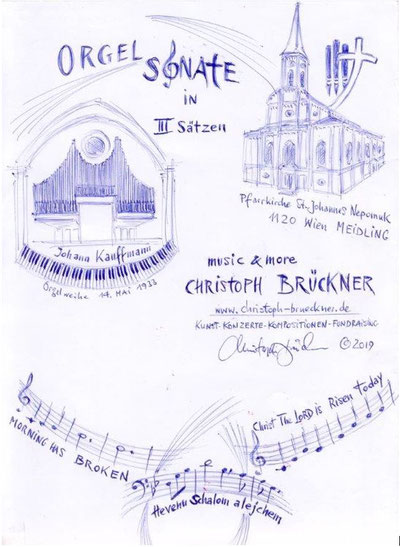 ORGEL SONATE
in
III Sätzen
Pfarrkirche St. Johannes Nepomuk
1120 Wien MEIDLING
Johann Kauffmann
Orgelweihe 14. MAI 1933
music & more
CHRISTOPH BRÜCKNER
www.christoph-brueckner.de
KUNST-KONZERTE-KOMPOSITIONEN-FUNDRAISING
Christoph Brückner ©2019
MORNING HAS BROKEN
Hevenu Schalom alejchem
Christ The LORD is Risen Today